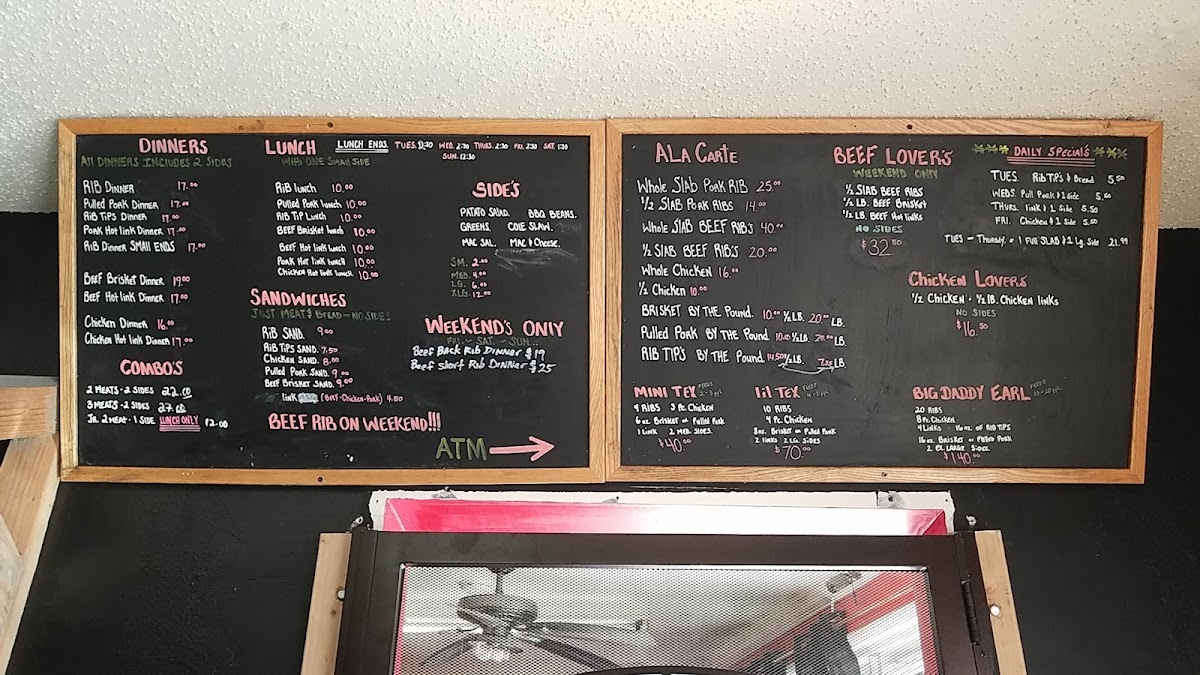 DINNERS
All DINNERS INCLUDES 2 SIDES
RIB DINNER 17.00
Pulled Pork Dinner 17.00
RIB TIPS Dinner 17.00
Pork Hot link Dinner 17.00
Rib Dinner SMALL ENDS 17.00
BEEF Brisket Dinner 19.00
BEEF Hot link Dinner 17.00
Chicken Dinner 16.00
Chicken Hot link Dinner 17.00
COMBO'S
2 MEATS - 2 SIDES 22.00
3 MEATS - 2 SIDES 27.00
Jr. 2 MEAT - 1 SIDE LUNCH ONLY 12.00
LUNCH
WITH ONE SMALL SIDE
LUNCH ENDS. TUES. WED. 2:30 THURS. 2:30 FRI. 2:30 SAT. 1:30
SUN. 12:30
RIB lunch 10.00
Pulled Pork lunch 10.00
RIB TIP Lunch 10.00
BEEF Brisket lunch 10.00
BEEF Hot link lunch 10.00
Pork Hot link lunch 10.00
Chicken Hot link lunch 10.00
SANDWICHES
JUST MEAT & BREAD - NO SIDES
RIB SAND. 9.00
RIB TIPS SAND. 7.50
Chicken SAND. 8.00
Pulled Pork SAND. 9.00
BEEF Brisket SAND. 9.00
link (BEEF-Chicken-Pork) 4.50
BEEF RIB ON WEEKEND!!!
SIDE'S
PATATO SALAD. BBQ BEANS.
GREENS. COLE SLAW.
MAC SAL. MAC & CHEESE.
SM. 2.00
MED. 4.00
LG. 6.00
X.LG. 12.00
WEEKEND'S ONLY
FRI. - SAT. - SUN...
BEEF Back RIB DINNER $19
BEEF Short RIB DINNER $25
ATM
ALA CARTE
Whole Slab Pork RIB 25.00
1/2 SLAB PORK RIBS 14.00
Whole SLAB BEEF RIB'S 40.00
1/2 SLAB BEEF RIB'S 20.00
Whole Chicken 16.00
1/2 Chicken 10.00
BRISKET BY THE POUND. 10.00 1/2 LB. 20.00 LB.
Pulled Pork BY THE POUND 10.00 1/2 LB. 20.00 LB.
RIB TIP'S BY THE POUND 14.50 1/2 LB. 7.25 LB
BEEF LOVER'S
WEEKEND ONLY
1/2 SLAB BEEF RIBS
1/2 LB. BEEF Brisket
1/2 LB. BEEF Hot links
NO SIDES
$32.50
DAILY SPECIAL'S
TUES. RIB TIP'S & Bread 5.50
WEDS. Pull Pork & 1 Side 5.50
THURS. link & 1 Side 5.50
FRI. Chicken & 1 Side 5.50
TUES - Thursday. = 1 Full SLAB & 2 Lg. Side 21.99
Chicken LOVER'S
1/2 Chicken - 1/2 LB. Chicken links
NO SIDES
$16.50
MINI TEX FEEDS
4 RIBS 3 Pc. Chicken
6 oz. Brisket or Pulled Pork
1 Link 2 MED. SIDES.
$40.00
lil TEX FEEDS
10 RIBS
4 Pc. Chicken
8oz. Brisket or Pulled Pork
2 links 2 LG. SIDES
$70.00
BIG DADDY EARL FEEDS
20 RIBS
8 Pc. Chicken
4 Links 16 oz OF RIB TIPS
16 oz. Brisket or Pulled Pork
2 EX. LARGE SIDES.
$140.00